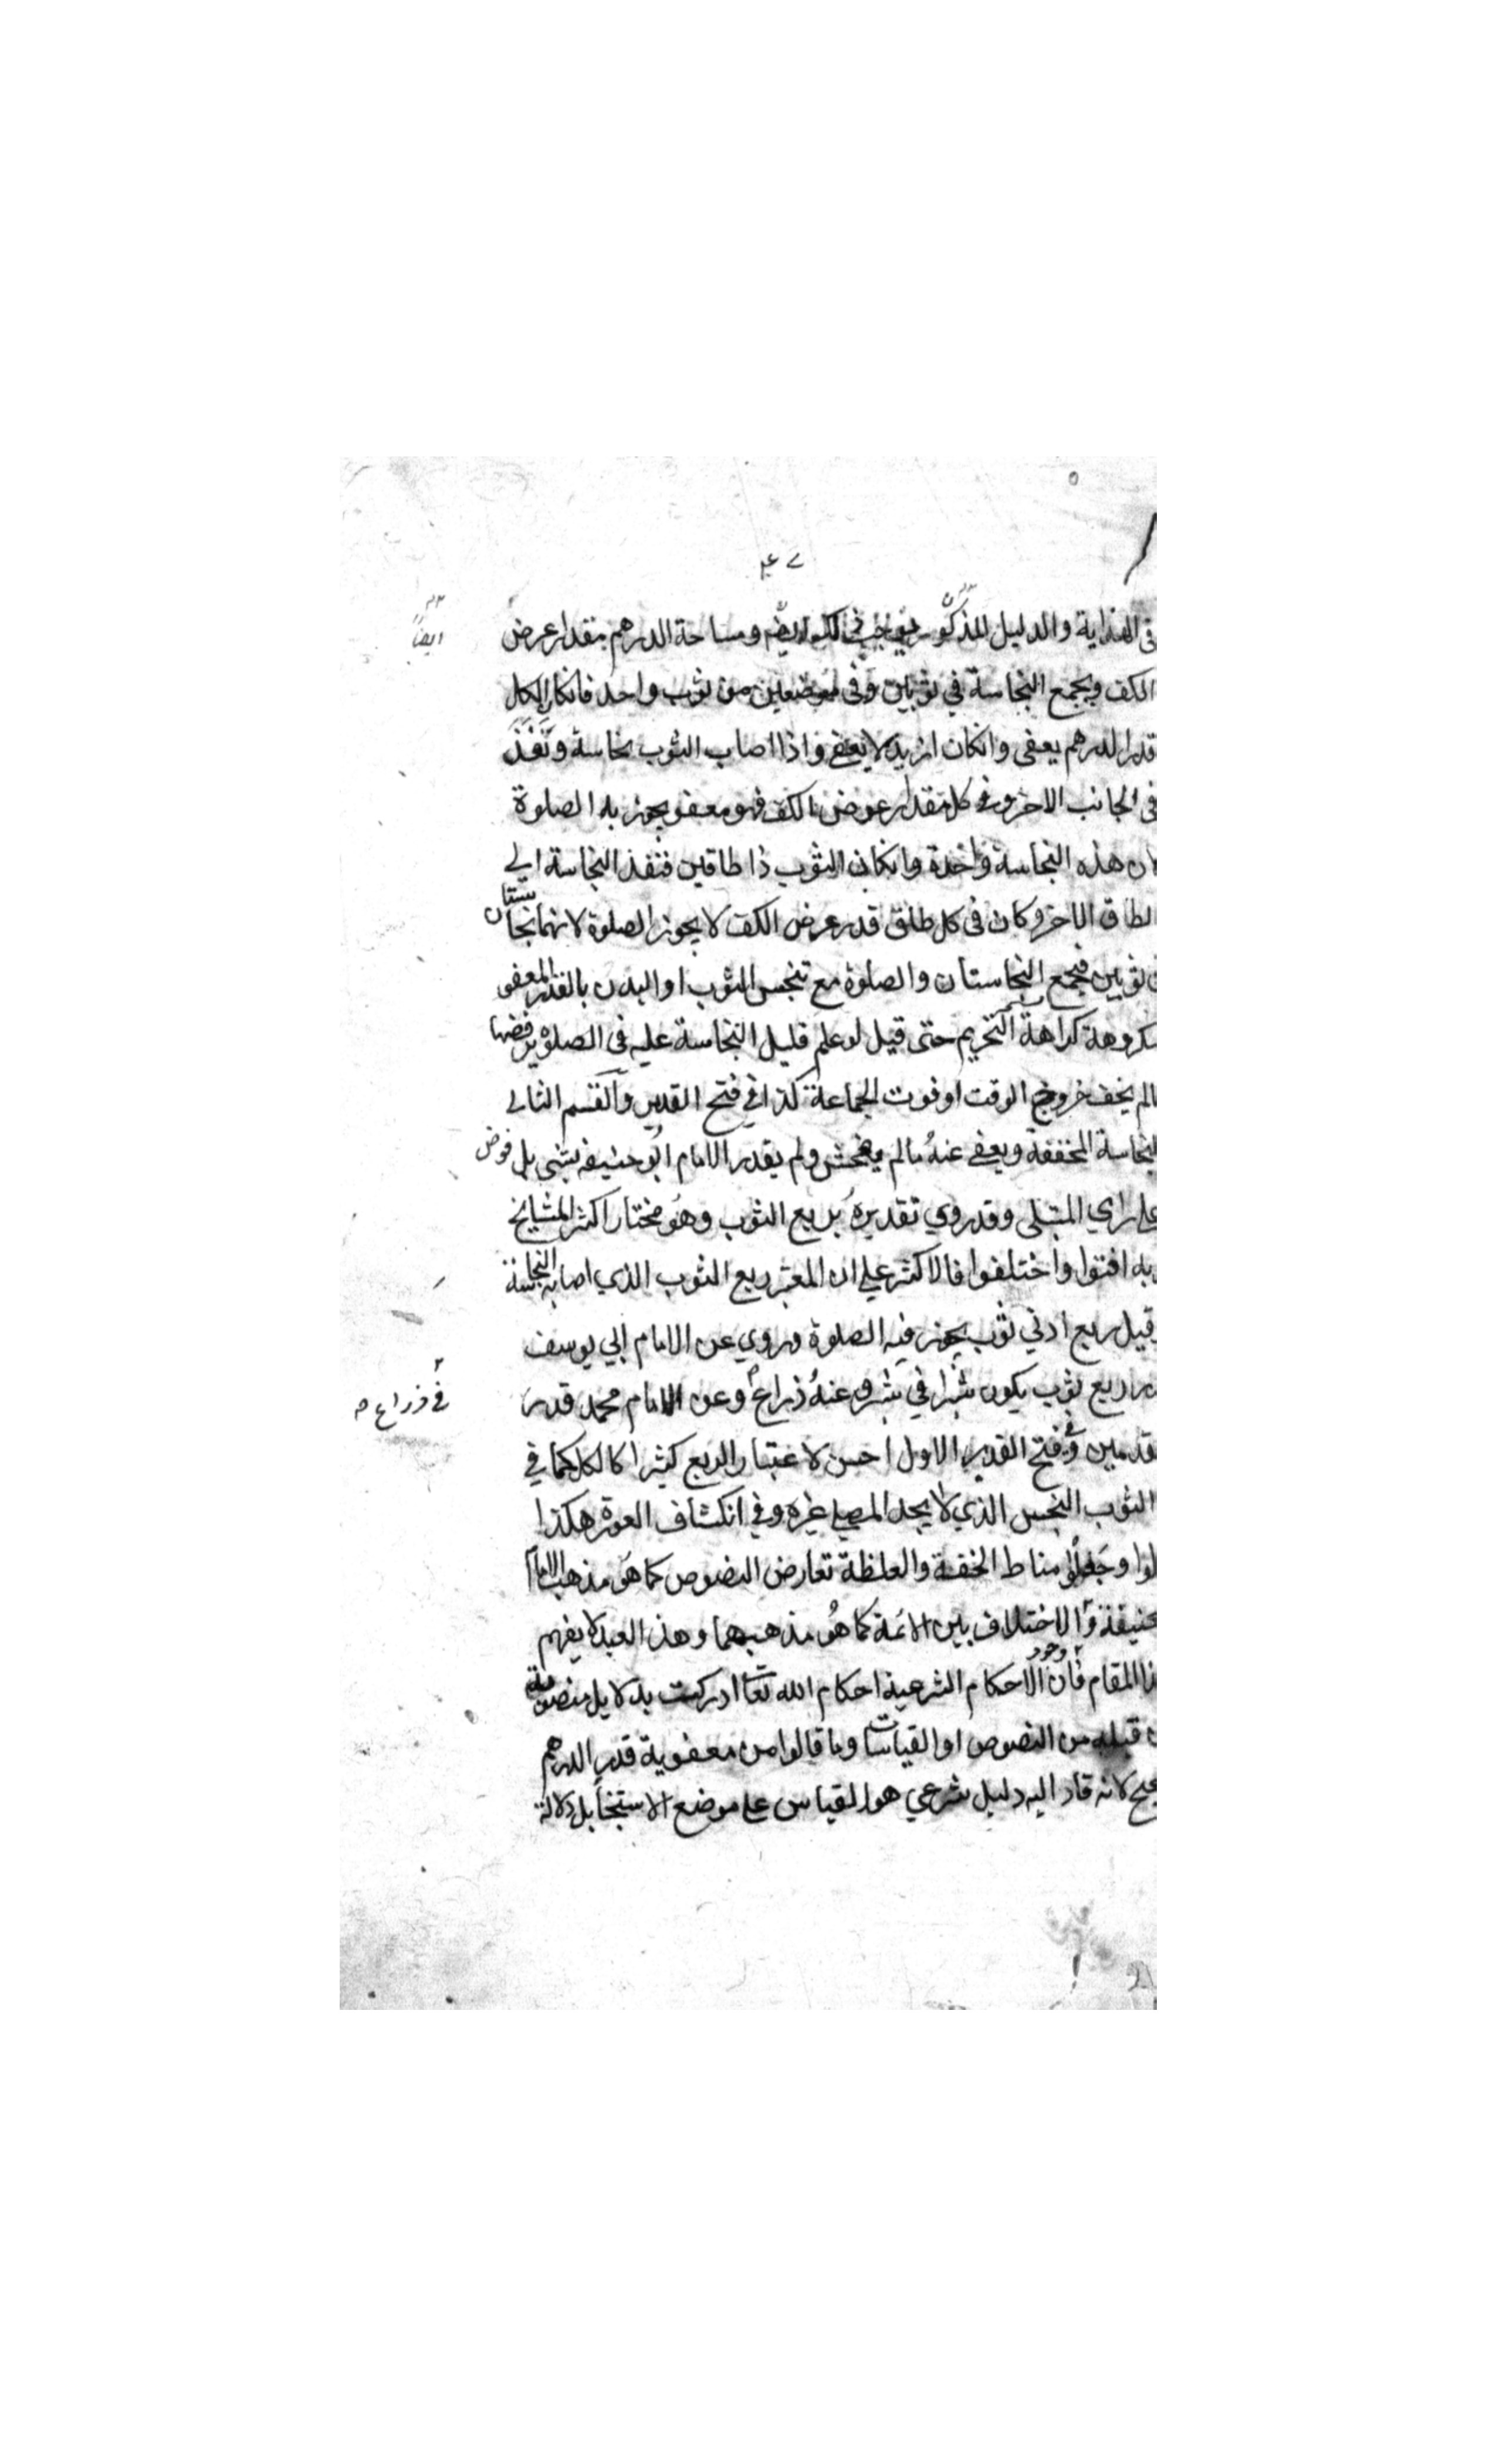 ٤٧
في الهداية والدليل المذكور يوجب في الكل ايضه ومساحة الدرهم بقدار عرض
ايضاً
الكف ويجمع النجاسة في ثوبين وفى موضعين من ثوب واحد فانكان الكل
قدر الدرهم يعفى وانكان ازيد لا يعفى واذا اصاب الثوب نجاسة ونَفَذَ
فى الجانب الاخر وفى كل مقدار عرض الكف فهو معفو يجوز به الصلوة
لان هذه النجاسة واحدة وانكان الثوب ذا طاقين فنفذ النجاسة الى
الطاق الاخر وكان فى كل طاق قدر عرض الكف لا يجوز الصلوة لانهما نجاستان
ثوبين فيجمع النجاستان والصلوة مع تنجس الثوب او البدن بالقدر المعفو
مكروهة كراهة التحريم حتى قيل لو علم قليل النجاسة عليه فى الصلوة يرفضها
مالم يخف خروج الوقت او فوت الجماعة كذا في فتح القدير والقسم الثانى
النجاسة المخففة ويعفى عنهُ مالم يفحش ولم يقدر الامام ابو حنيفه بشى بل فوض
على راي المبتلى وقد روي تقديرهُ بربع الثوب وهُو مختار اكثر المشايخ
وبه افتوا واختلفوا فالاكثر على ان المعتبر ربع الثوب الذي اصابه النجاسة
وقيل ربع ادني ثوب يجوز فيه الصلوة وروي عن الامام ابي يوسف
ربع ثوب يكون شبرا في شبر وعنهُ ذراع وعن الامام محمد قدر
في ذراع صح
قدمين وفي فتح القدير الاول احسن لاعتبار الربع كثيرا كالكل كما في
الثوب النجس الذي لا يجد المصلي غيره وفي انكشاف العورة هكذا
قالوا وجعلوا مناط الخفة والغلظة تعارض النصوص كما هُو مذهب الامام
حنيفة والاختلاف بين الائمة كما هُو مذهبهما وهذا العبد لا يفهم
هذا المقام فان وجود الاحكام الشرعية احكام الله تعا ادركت بدلايل منصوبة
من قبله من النصوص او القياسات وما قالوا من معفوية قدر الدرهم
صحيح لانه قاد اليه دليل شرعي هو القياس على موضع الاستنجا بل دلالة